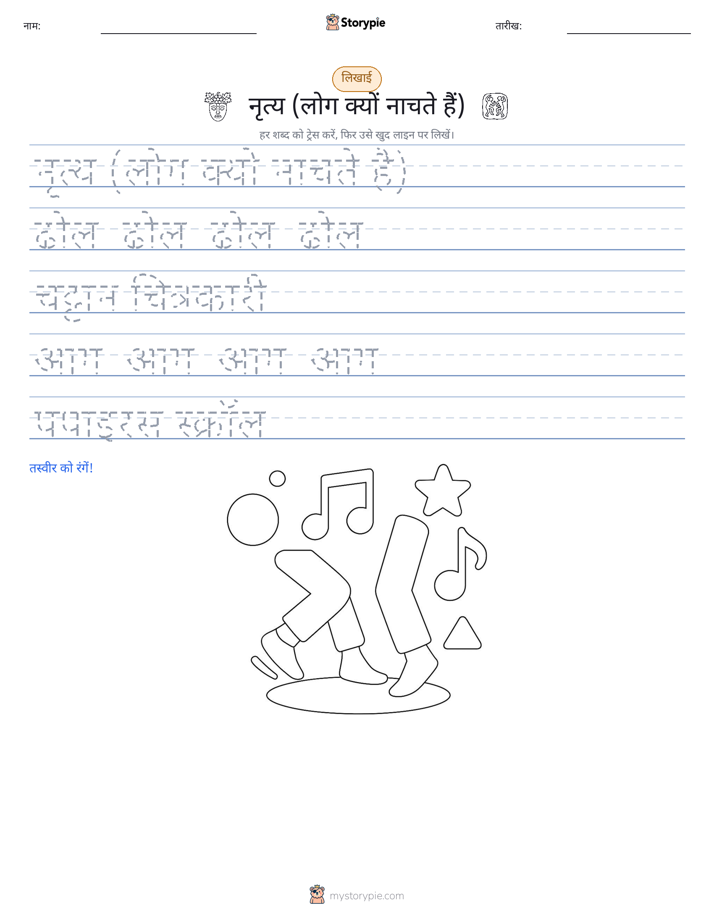 नाम:
Storypie
तारीख:
लिखाई
नृत्य (लोग क्यों नाचते हैं)
हर शब्द को ट्रेस करें, फिर उसे खुद लाइन पर लिखें।
नृत्य (लोग क्यों नाचते हैं)
ढोल ढोल ढोल ढोल
चट्टान चित्रकारी
आग आग आग आग
पपाइरस स्क्रॉल
तस्वीर को रंगें!
mystorypie.com